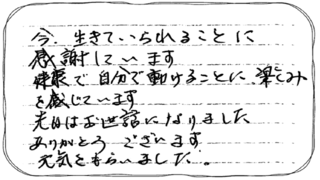 今、生きていられることに
感謝しています
健康で自分で動けることに、楽しみ
を感じています
先日はお世話になりました
ありがとうございます
元気をもらいました。